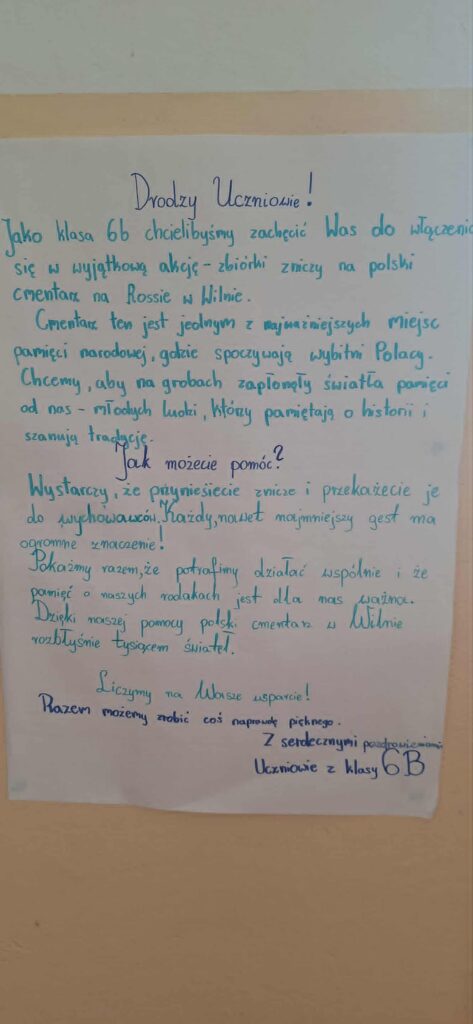 Drodzy Uczniowie!
Jako klasa 6b chcielibyśmy zachęcić Was do włączenia
się w wyjątkową akcję - zbiórki zniczy na polski
cmentarz na Rossie w Wilnie.
Cmentarz ten jest jednym z najważniejszych miejsc
pamięci narodowej, gdzie spoczywają wybitni Polacy.
Chcemy, aby na grobach zapłonęły światła pamięci
od nas - młodych ludzi, którzy pamiętają o historii i
szanują tradycję.
Jak możecie pomóc?
Wystarczy, że przyniesiecie znicze i przekażecie je
do wychowawców. Każdy, nawet najmniejszy gest ma
ogromne znaczenie!
Pokażmy razem, że potrafimy działać wspólnie i że
pamięć o naszych rodakach jest dla nas ważna.
Dzięki naszej pomocy polski cmentarz w Wilnie
rozbłyśnie tysiącem świateł.
Liczymy na Wasze wsparcie!
Razem możemy zrobić coś naprawdę pięknego.
Z serdecznymi pozdrowieniami
Uczniowie z klasy 6B